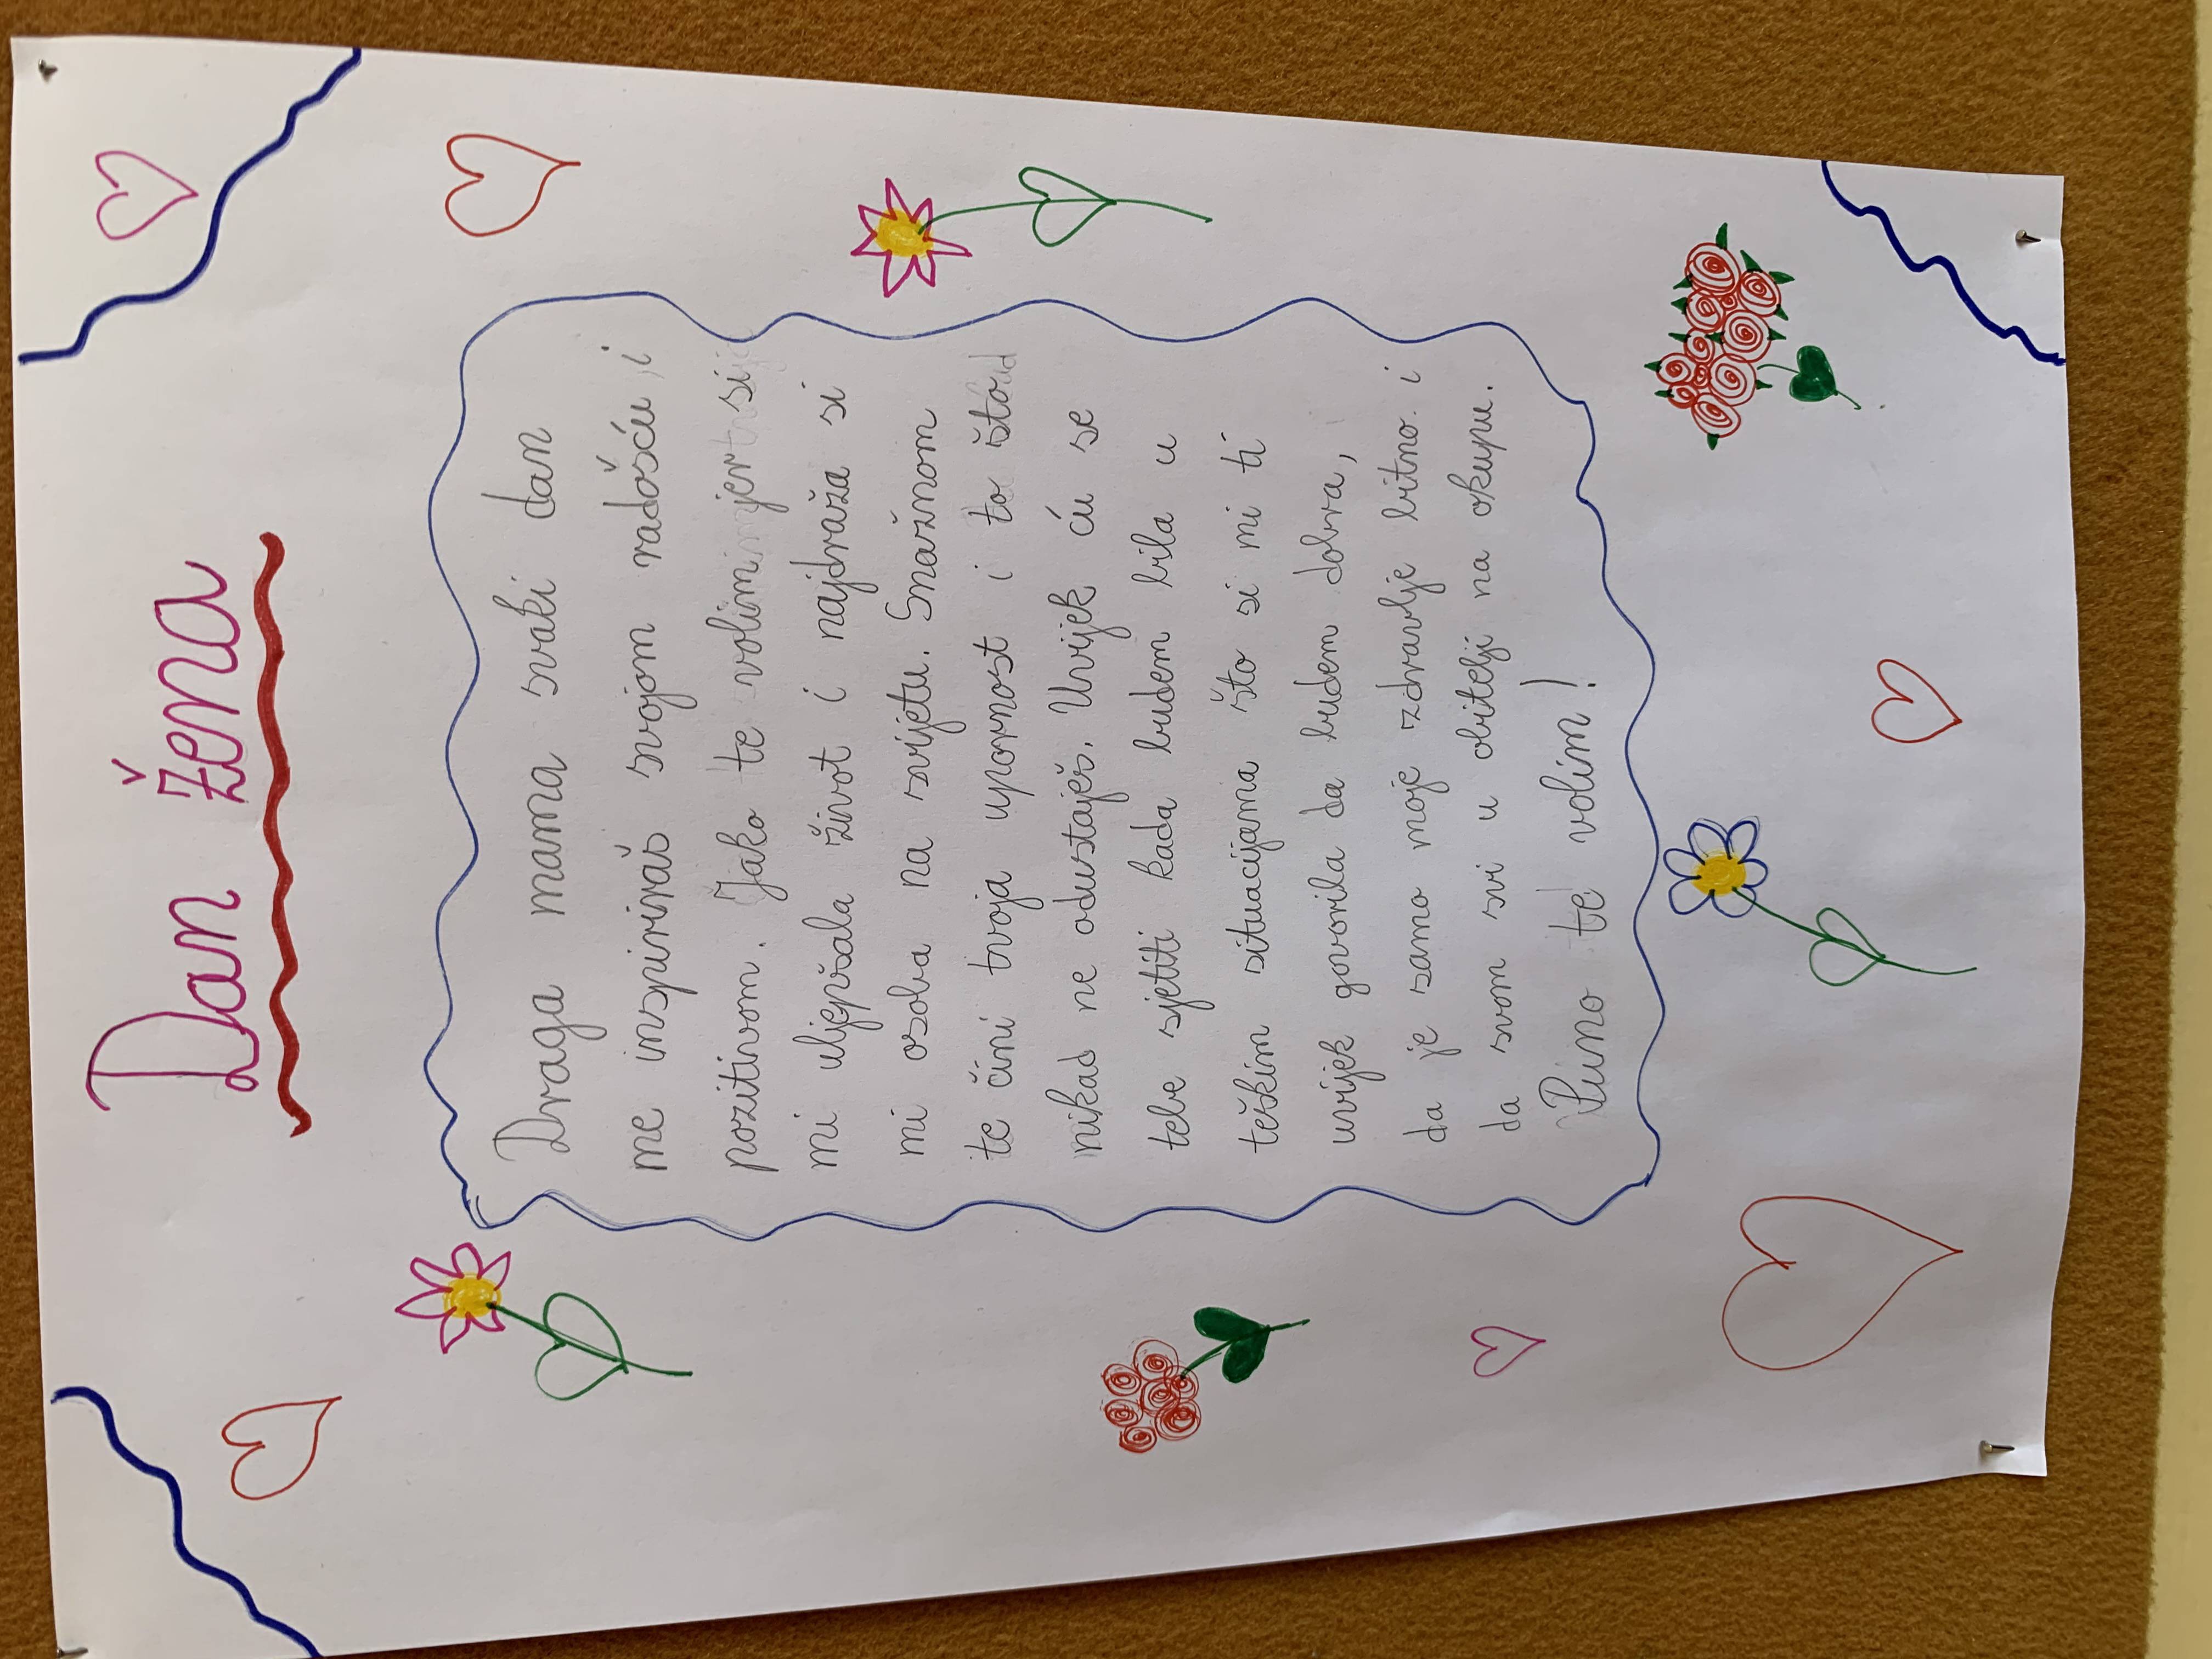 Dan žena
Draga mama svaki dan
me inspiriraš svojom radošću i
pozitivom. Jako te volim jer si
mi uljepšala život i najdraža si
mi osoba na svijetu. Snažnom
te čini tvoja upornost i to što
nikad ne odustaješ. Uvijek ću se
tebe sjetiti kada budem bila u
teškim situacijama što si mi ti
uvijek govorila da budem dobra,
da je samo moje zdravlje bitno i
da svom svi u obitelji na okupu.
Puno te volim!